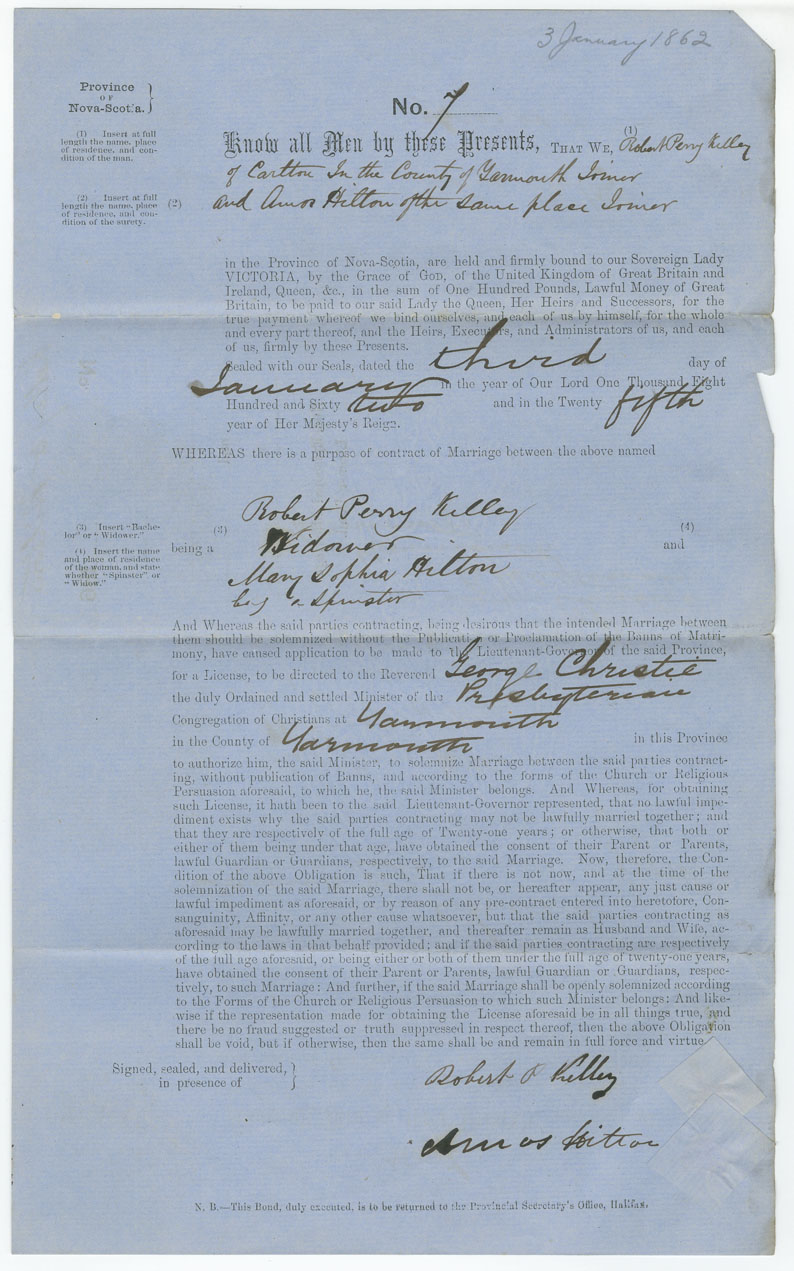 3 January 1862
Province
OF
Nova-Scotia.
No. 7
(1) Insert at full
length the name, place
of residence, and con-
dition of the man.
Know all Men by these Presents, THAT WE, (1) Robert Perry Kelley
of Carlton In the County of Yarmouth Joiner
(2) Insert at full
length the name, place
of residence, and con-
dition of the surety.
(2) and Amos Hilton of the same place Joiner
in the Province of Nova-Scotia, are held and firmly bound to our Sovereign Lady
VICTORIA, by the Grace of GOD, of the United Kingdom of Great Britain and
Ireland, Queen, &c., in the sum of One Hundred Pounds, Lawful Money of Great
Britain, to be paid to our said Lady the Queen, Her Heirs and Successors, for the
true payment whereof we bind ourselves, and each of us by himself, for the whole
and every part thereof, and the Heirs, Executors, and Administrators of us, and each
of us, firmly by these Presents.
Sealed with our Seals, dated the third day of
January in the year of Our Lord One Thousand Eight
Hundred and Sixty two and in the Twenty fifth
year of Her Majesty's Reign.
WHEREAS there is a purpose of contract of Marriage between the above named
Robert Perry Kelley
(3) Insert "Bache-
lor" or "Widower."
(4) Insert the name
and place of residence
of the woman, and state
whether "Spinster" or
"Widow."
(3) (4)
being a Widower and
Mary Sophia Hilton
a Spinster
And Whereas the said parties contracting, being desirous that the intended Marriage between
them should be solemnized without the Publication or Proclamation of the Banns of Matri-
mony, have caused application to be made to the Lieutenant-Governor of the said Province,
for a License, to be directed to the Reverend George Christie
the duly Ordained and settled Minister of the Presbyterian
Congregation of Christians at Yarmouth
in the County of Yarmouth in this Province
to authorize him, the said Minister, to solemnize Marriage between the said parties contract-
ing, without publication of Banns, and according to the forms of the Church or Religious
Persuasion aforesaid, to which he, the said Minister belongs. And Whereas, for obtaining
such License, it hath been to the said Lieutenant-Governor represented, that no lawful impe-
diment exists why the said parties contracting may not be lawfully married together; and
that they are respectively of the full age of Twenty-one years; or otherwise, that both or
either of them being under that age, have obtained the consent of their Parent or Parents,
lawful Guardian or Guardians, respectively, to the said Marriage. Now, therefore, the Con-
dition of the above Obligation is such, That if there is not now, and at the time of the
solemnization of the said Marriage, there shall not be, or hereafter appear, any just cause or
lawful impediment as aforesaid, or by reason of any pre-contract entered into heretofore, Con-
sanguinity, Affinity, or any other cause whatsoever, but that the said parties contracting as
aforesaid may be lawfully married together, and thereafter remain as Husband and Wife, ac-
cording to the laws in that behalf provided; and if the said parties contracting are respectively
of the full age aforesaid, or being either or both of them under the full age of twenty-one years,
have obtained the consent of their Parent or Parents, lawful Guardian or Guardians, respec-
tively, to such Marriage: And further, if the said Marriage shall be openly solemnized according
to the Forms of the Church or Religious Persuasion to which such Minister belongs: And like-
wise if the representation made for obtaining the License aforesaid be in all things true, and
there be no fraud suggested or truth suppressed in respect thereof, then the above Obligation
shall be void, but if otherwise, then the same shall be and remain in full force and virtue
Signed, sealed, and delivered,
in presence of
Robert P Kelley
Amos Hilton
N. B.—This Bond, duly executed, is to be returned to the Provincial Secretary's Office, Halifax.